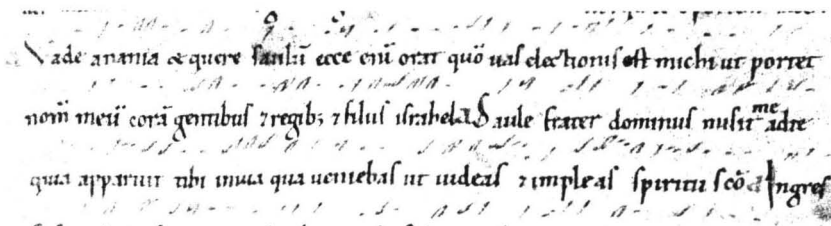 Vade anania & quere saulū ecce eni᷒ orat quō uas electionis est michi ut portet
nom̄ meū corā gentibus ⁊ regib; ⁊ filiis israhel a Saule frater dominus misit me ad te
quia apparuit tibi in uia qua ueniebas ut uideas ⁊ implearis spiritu sc̄o a Ingres